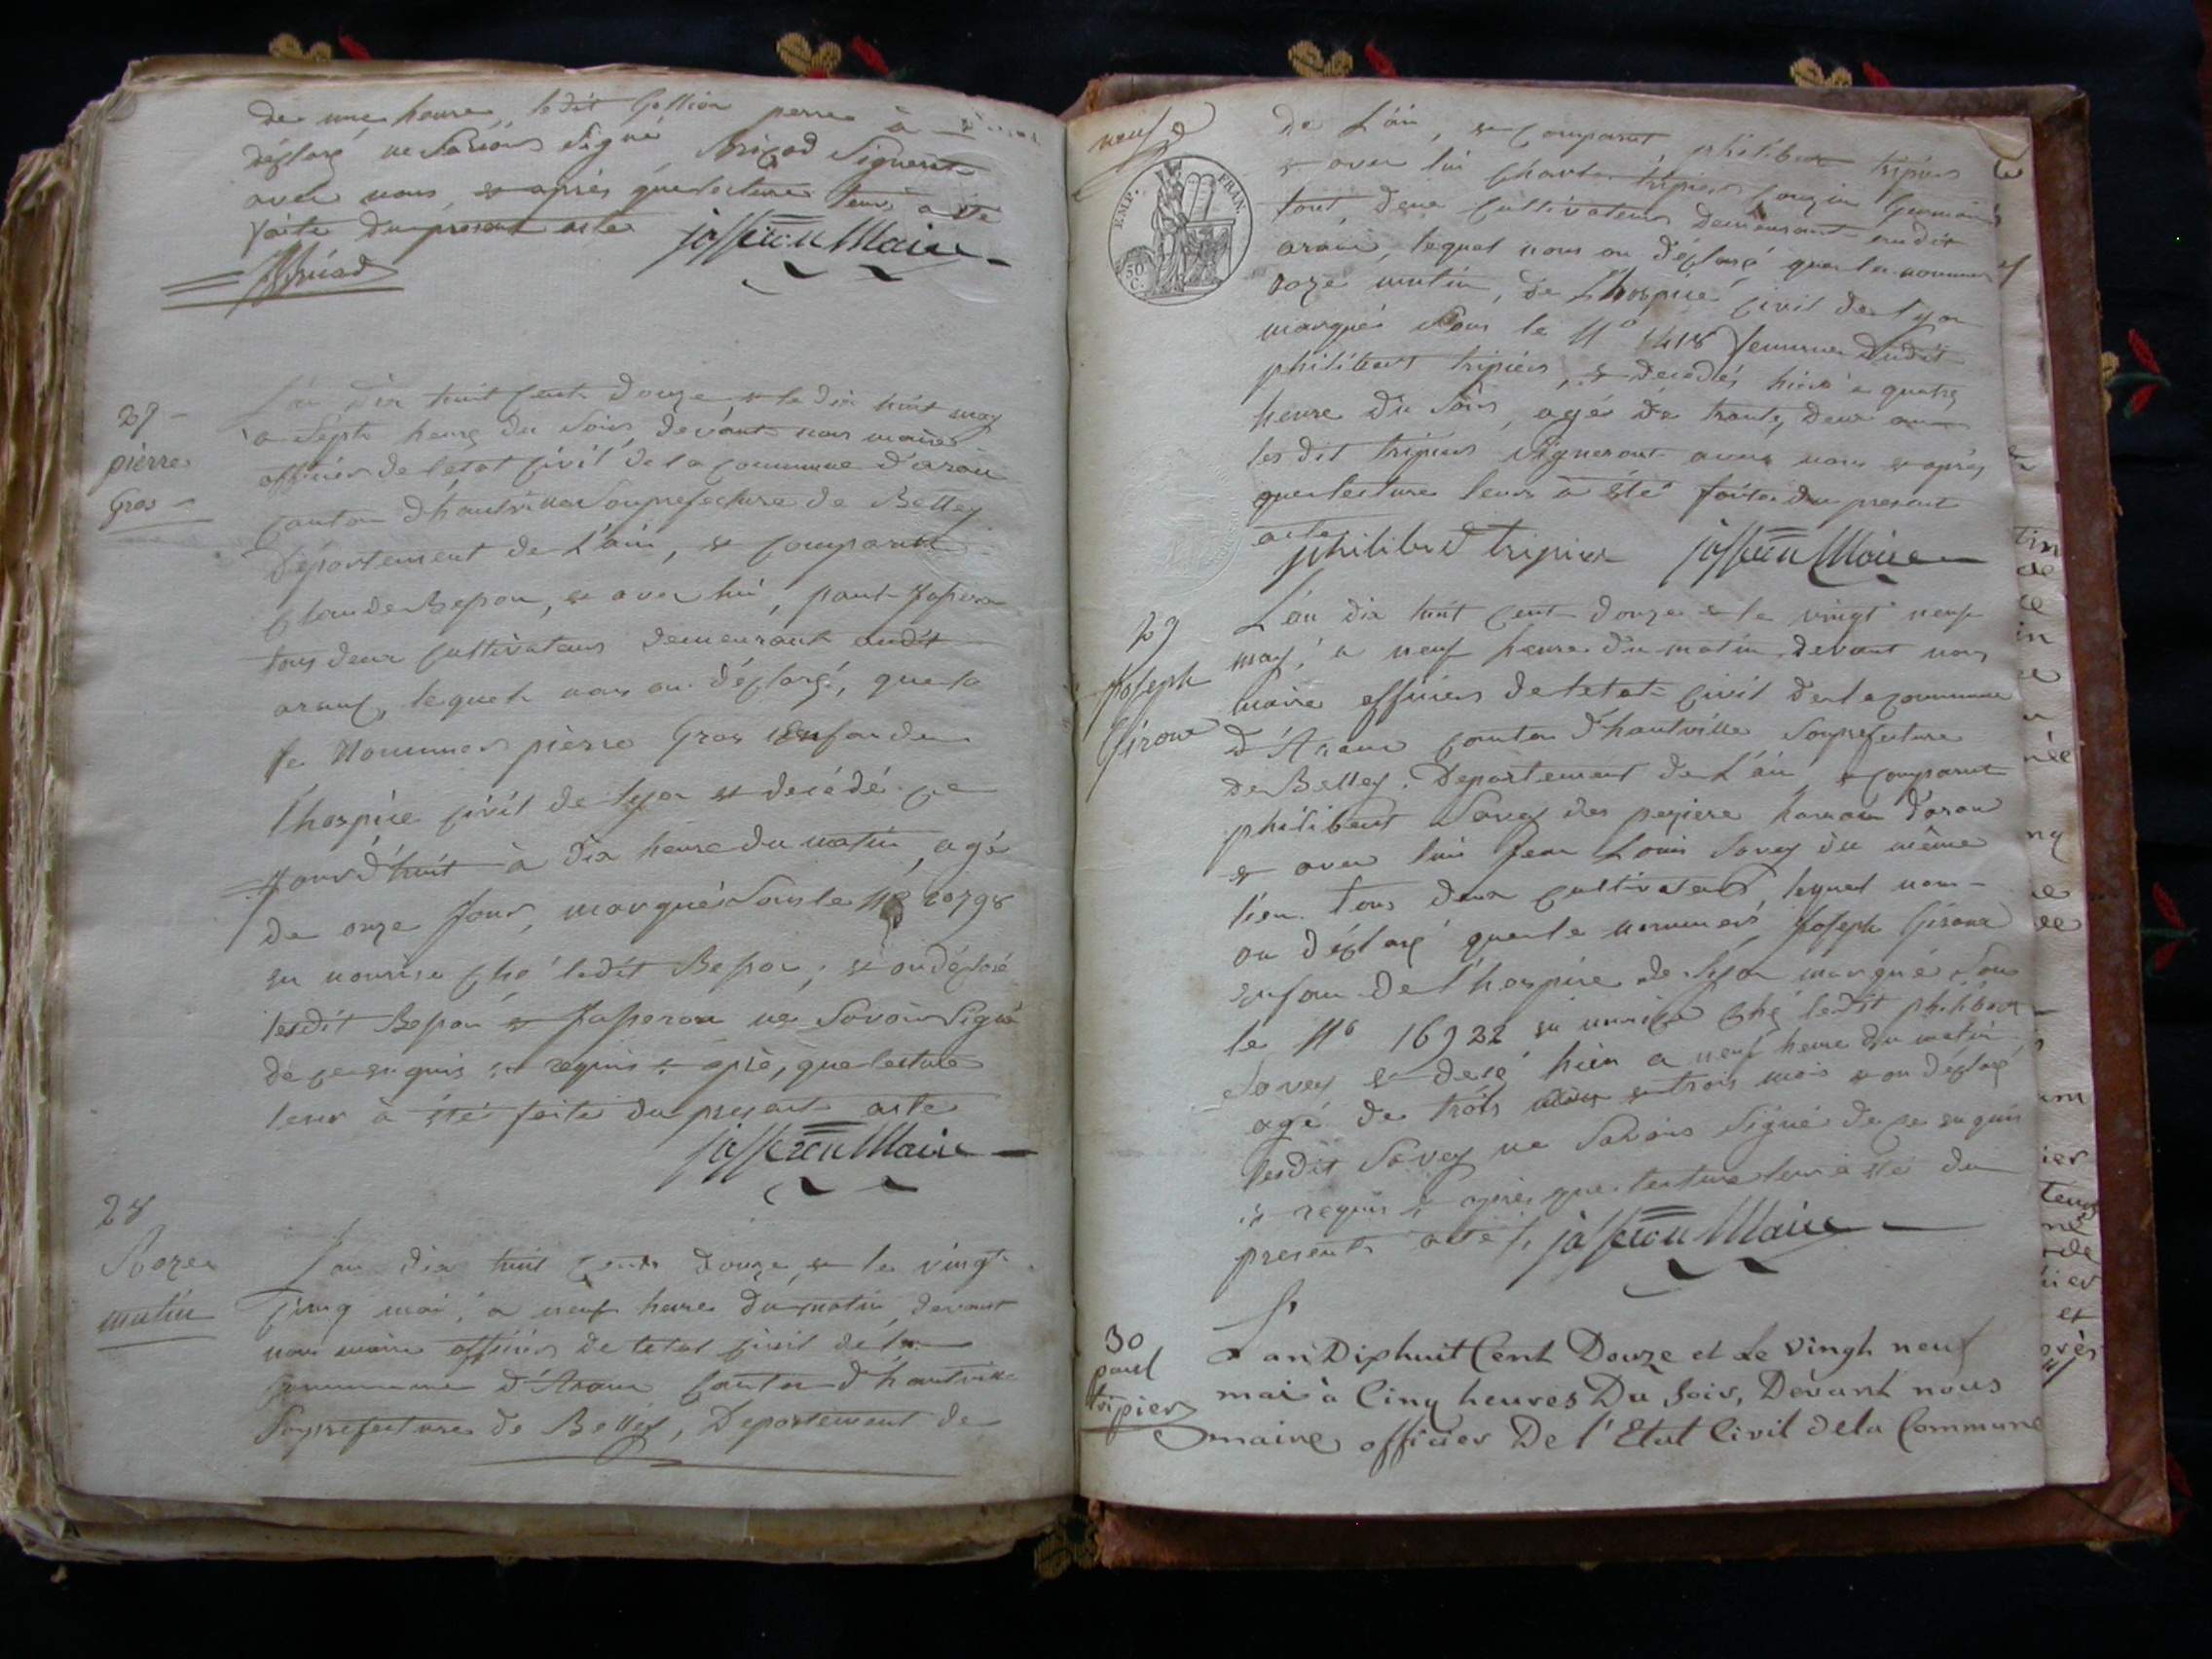 de une heure, ledit Gollion perre à
déclaré ne savoir signé Brisod signeront
avec nous, et après que lecture leur a été
faite du present acte josseron Maire
27
pierre
Gros
L'an dix huit cent douze et le dix huit may
a sept heure du soir, devant nous maire
officier de l'etat civil de la commune d'aran
canton d'hautville Souprefecture de Belley
Département de L'ain, est comparut
Claude Besson, et avec lui, paul Josseron
tous deux cultivateur demeurant audit
aranc, lequel nous on déclaré, que le
le Nommer pièrre Gros Enfan de
l'hospice civil de lyon est decédé ce
jourd'huit à dix heure du matin, agé
de onze jour, marqué sous le Nº 20798
en nourise ché ledit Besson, et on déclaré
lesdit Besson et Josseron ne savoir signé
de ce enquis et requis et aprè, que lecture
leur à été faite du present acte
josseron Maire
28
Roze
matin
L'an dix huit cent douze, et le vingt
cinq mai, a neuf heure du matin, devant
nous maire officier de letat civil de la
commune d'Aranc Canton d'hautville
Souprefecture de Belley, Departement de
neuf
EMP. FRAN.
50 C.
de L'ain, est comparut philibert tripier
et avec lui Charle tripier couzin Germain
tout deux cultivateur demeurant audit
aranc, lequel nous on déclaré que la nommé
roze matin, de L'hospice civil de lyon
marqué sous le Nº 1418 femme dudit
philibert tripier, et decedés hiér a quatre
heure du soir, agé de trante, deux an
les dit tripier signeront avec nous et après
que lecture leur à été faite du present
acte
philiberd tripier josseron Maire
29
Joseph
Giroux
L'an dix huit cent douze et le vingt neuf
may, a neuf heure du matin, devant nous
maire officier de letat civil de la commune
d'Aranc canton d'hautville Souprefecture
de Belley. Departement de L'ain, est comparut
philibert Savey des pezieres hamau d'aran
et avec lui jean Louis Savey du même
lieu. tous deux cultivateur, lequel nous
on déclaré que le nommés Joseph Giroux
enfan de l'hospice de lyon marqué sou
le Nº 16922 en nourice ché ledit philibert
Savey et decé hiér a neuf heure du matin
agé de trois et trois mois et on déclaré
lesdit Savey ne savoir signé de ce enquis
et requis et après que lecture leur à été du
present acte josseron Maire
30
paul
tripier
L'an Dixhuit Cent Douze et Le vingh neuf
mai à Cinq heures Du Soir, Devant nous
maire officier De l'Etat Civil dela Commune